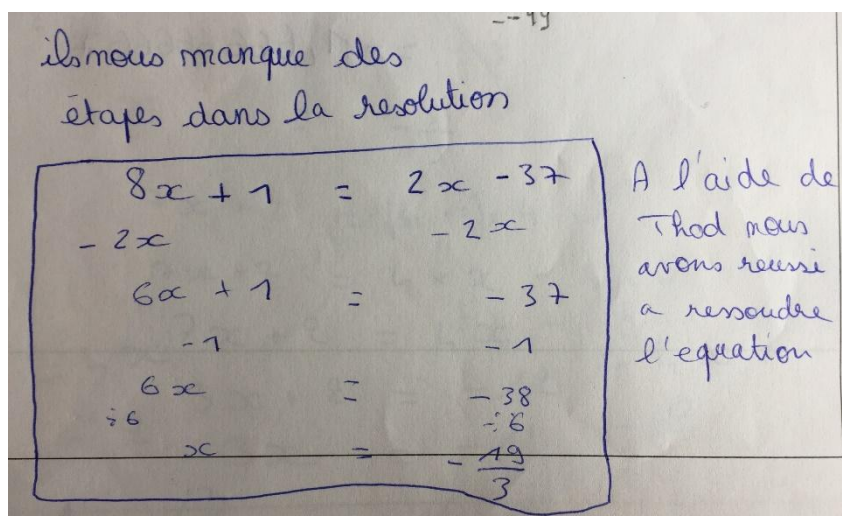 ils nous manque des
étapes dans la resolution
8x + 1 = 2x - 37
- 2x - 2x
6x + 1 = - 37
- 1 - 1
6x = - 38
÷6 ÷6
x = - 19/3
A l'aide de
Thod nous
avons reussi
a ressoudre
l'equation